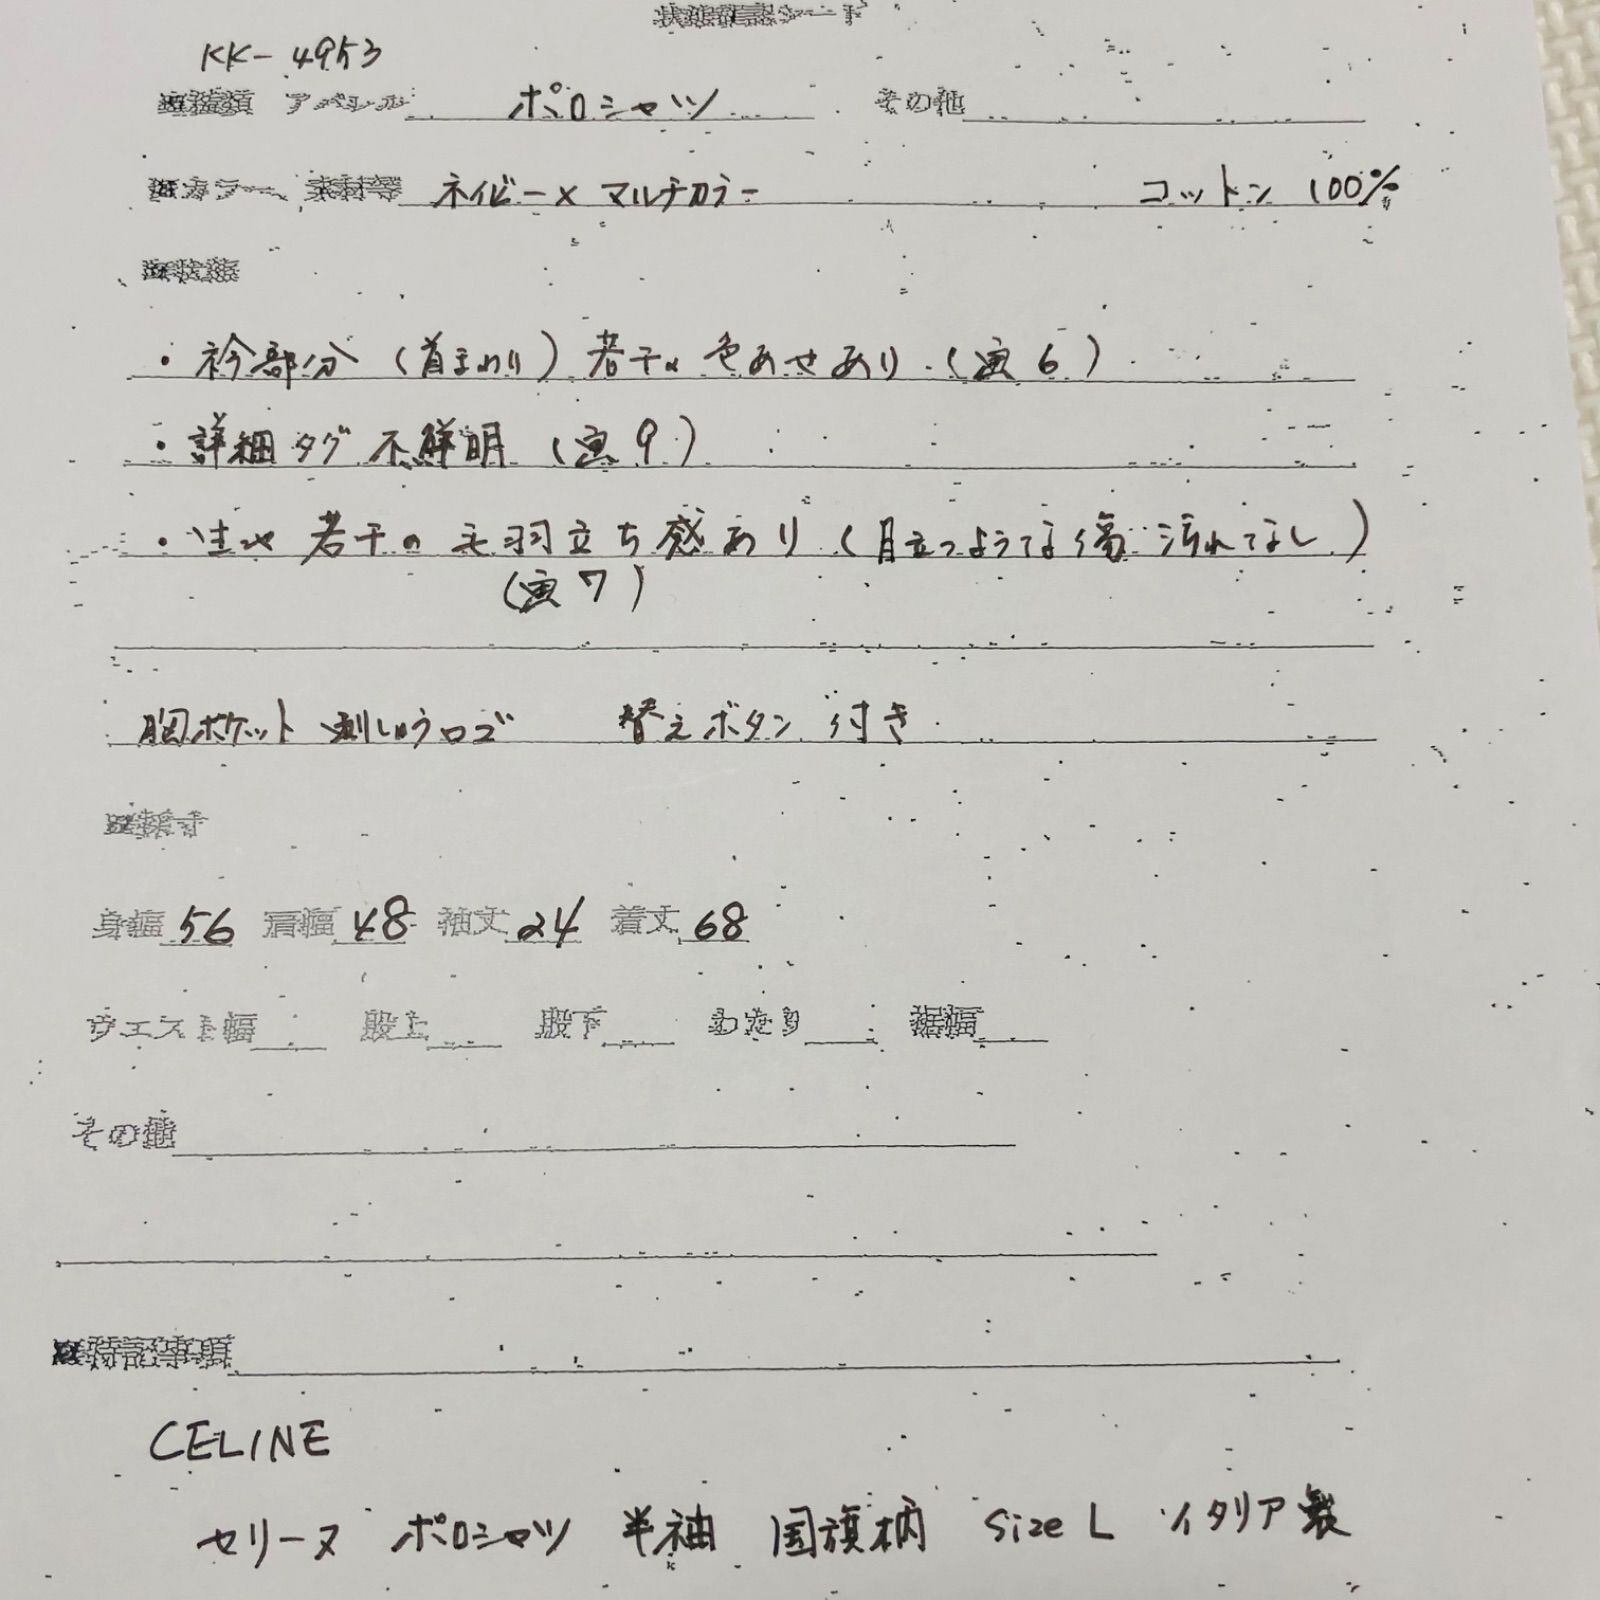 状態確認シート
KK-4953
■種類 アパレル ポロシャツ その他
■カラー、素材等 ネイビー×マルチカラー コットン 100%
■状態
・衿部分(首まわり)若干の色あせあり(写6)
・詳細タグ不鮮明(写9)
・生地 若干の毛羽立ち感あり(目立つような傷汚れなし)
(写7)
胸ポケット 刺しゅうロゴ 替えボタン付き
■採寸
身幅 56 肩幅 48 袖丈 24 着丈 68
ウエスト幅 股上 股下 わたり 裾幅
その他
■特記事項
CELINE
セリーヌ ポロシャツ 半袖 国旗柄 size L イタリア製